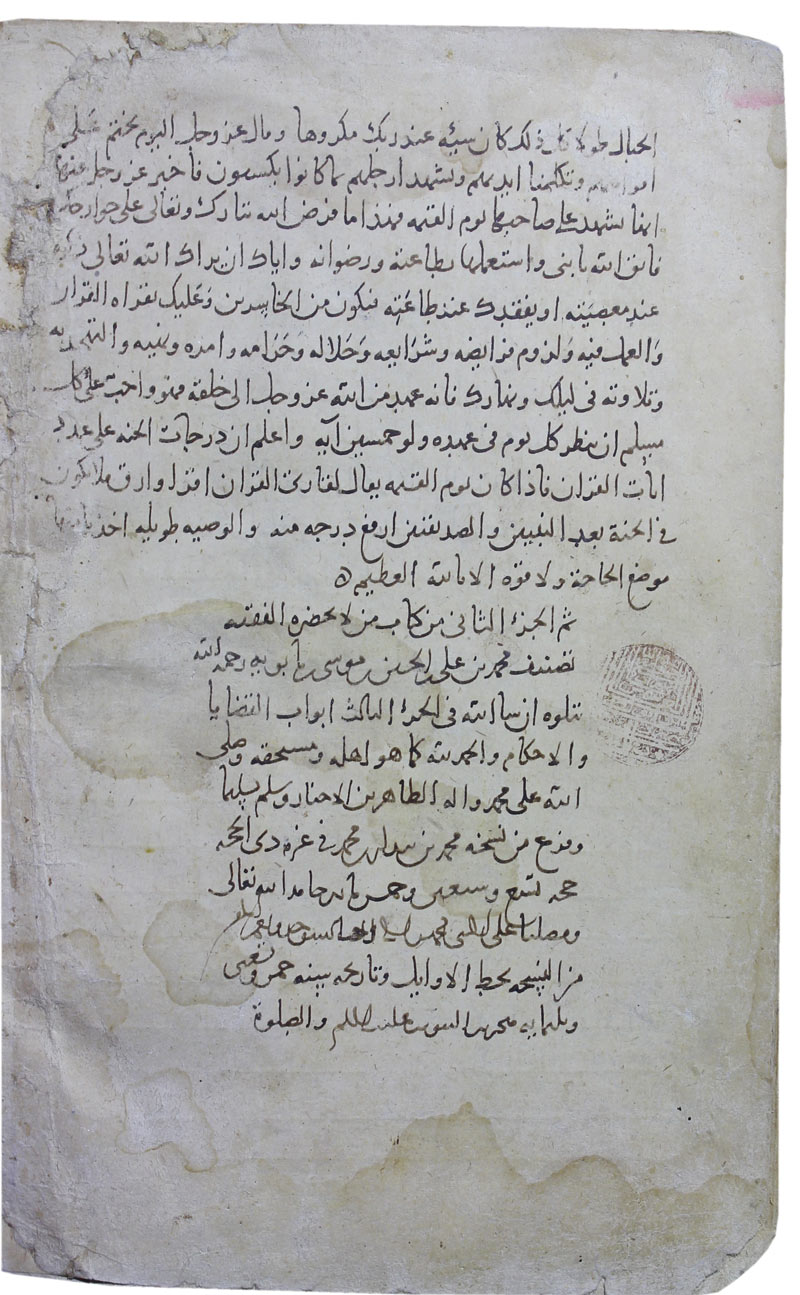 الجبال طولا كل ذلك كان سيئه عند ربك مكروها وقال عز وجل اليوم نختم على
افواههم وتكلمنا ايديهم وتشهد ارجلهم بما كانوا يكسبون فاخبر عز وجل عنها
انها تشهد على صاحبها يوم القيمه فهذا ما فرض الله تبارك وتعالى على جوارحك
فاتق الله يا بنى واستعملها بطاعته ورضوانه واياك ان يراك الله تعالى ذكره
عند معصيته او يفقدك عند طاعته فتكون من الخاسرين وعليك بقراه القران
والعمل فيه ولزوم فرايضه وشرايعه وحلاله وحرامه وامره ونهيه والتهجد به
وتلاوته فى ليلك ونهارك فانه عهد من الله عز وجل الى خلقه فهو واجب على كل
مسلم ان ينظر كل يوم فى عهده ولو خمسين آيه واعلم ان درجات الجنه على عدد
ايات القران فاذا كان يوم القيمه يقال لقارئ القران اقرا وارق فلا يكون
فى الجنة بعد النبيين والصديقين ارفع درجه منه والوصيه طويله اخذنا منها
موضع الحاجة ولا قوة الا بالله العظيم
تم الجزء الثانى من كتاب من لا يحضره الفقيه
تصنيف محمد بن على بن الحسين بن موسى بن بابويه رحمه الله
يتلوه ان شا الله فى الجزء الثالث ابواب القضايا
والاحكام والحمد لله كما هو اهله ومستحقه وصلى
الله على محمد واله الطاهرين الاخيار وسلم تسليما
وفرغ من نسخه محمد بن محمد فى غرة ذى الحجه
حجه تسع وسبعين وخمس مايه حامدا لله تعالى
ومصليا على النبى محمد
من النسخه بخط الاوايل وتاريخه سنه خمس وتسعين
وثلثمايه والصلوة